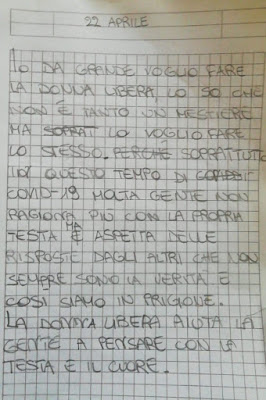 22 APRILE
IO DA GRANDE VOGLIO FARE
LA DONNA LIBERA, LO SO CHE
NON È TANTO UN MESTIERE
MA SOPRAT LO VOGLIO FARE
LO STESSO. PERCHÉ SOPRATTUTO
IN QUESTO TEMPO DI
COVID-19 MOLTA GENTE NON
RAGIONA PIÙ CON LA PROPRIA
TESTA MA ASPETTA DELLE
RISPOSTE DAGLI ALTRI CHE NON
SEMPRE SONO LA VERITÀ E
COSÌ SIAMO IN PRIGIONE.
LA DONNA LIBERA AIUTA LA
GENTE A PENSARE CON LA
TESTA E IL CUORE.